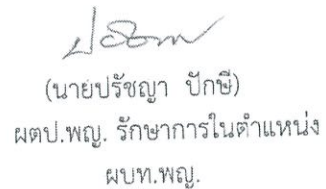 (นายปรัชญา ปักษี)
ผตป.พญ. รักษาการในตำแหน่ง
ผบท.พญ.